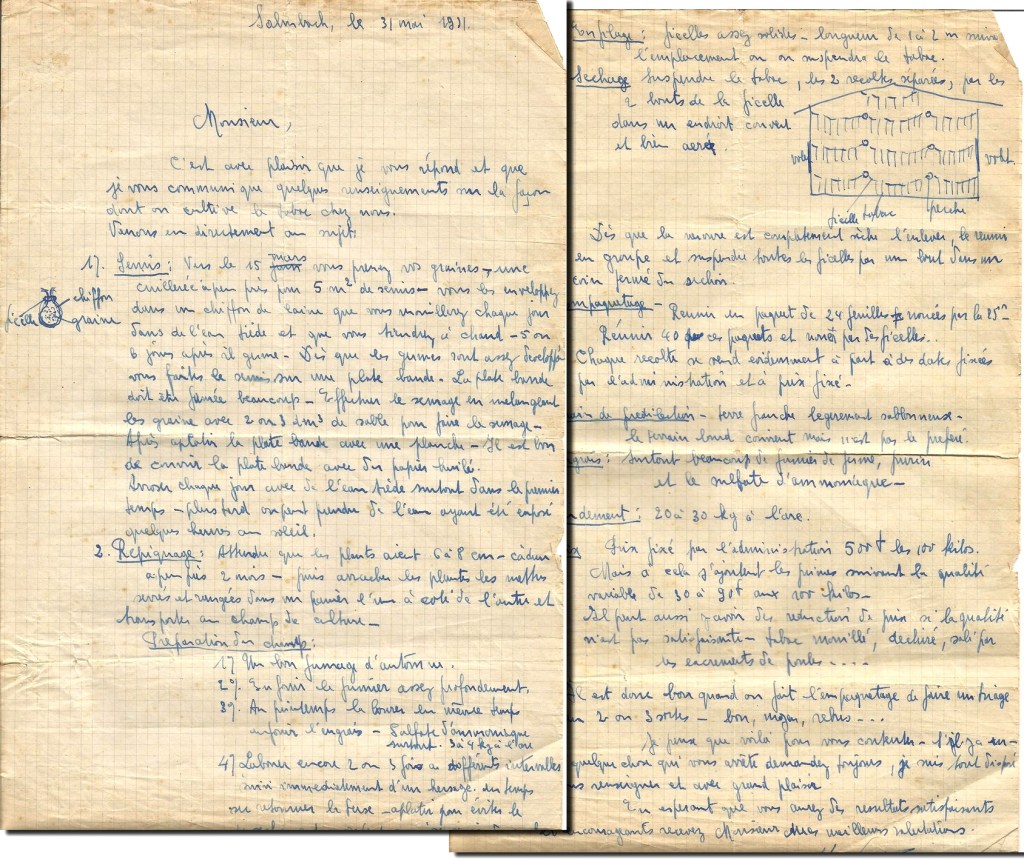 Salmbach, le 31 mai 1931.
Monsieur,
C'est avec plaisir que je vous répond et que
je vous communique quelques renseignements sur la façon
dont on cultive le tabac chez nous.
Venons en directement au sujet.
1). Semis : Vers le 15 mars vous prenez vos graines, une
cuillerée à peu près pour 5 m² de semis – vous les enveloppez
dans un chiffon de laine que vous mouillerez chaque jour
dans de l'eau tiède et que vous tiendrez à chaud – 5 ou
6 jours après il germe – Dès que les germes sont assez développés
vous faites le semis sur une plate bande – La plate bande
doit être fumée beaucoup – Effectuer le semage en mélangeant
les graine avec 2 ou 3 dm³ de sable pour faire le semage –
Après aplatir la plate bande avec une planche – Il est bon
de couvrir la plate bande avec du papier huilé.
Arroser chaque jour avec de l'eau tiède surtout dans les premier
temps – plus tard on peut prendre de l'eau ayant été exposé
quelques heures au soleil.
ficelle
chiffon
graine
2. Repiquage : Attendre que les plants aient 6 à 8 cm – càdire
à peu près 2 mois – puis arracher les plantes les mettre
serrés et rangées dans un panier l'un à coté de l'autre et
transportes au champ de culture –
Préparation du champ :
1) Un bon fumage d'automne.
2). Enfouir le fumier assez profondement.
3). Au printemps labourer en même temps
enfouir l'engrais – Sulfate d'ammoniaque
surtout. 3 à 4 kg à l'are
4) Labourer encore 2 ou 3 fois à different intervalles
suivi immediatement d'un hersage. en temps
sec retourner la terre – aplatir pour éviter le
ficelles assez solides – longueur de 1 à 2 m suiv
l'emplacement ou on suspendra le tabac.
Sechage Suspendre le tabac, les 2 recoltes separées, par les
2 bouts de la ficelle
dans un endroit couvert
et bien aeré
volet
volet
ficelle
tabac
perche
Dès que la nervure est completement sèche l'enlever, le reunir
en groupe et suspendre toutes les ficelles par un bout dans un
coin fermé du sechoir.
mpaquetage – Reunir en paquet de 24 feuilles nouées par la 25èm
Réunir 40 de ces paquets et nouer par des ficelles.
Chaque recolte se vend evidemment à part à des dates fixées
par l'administration et à prix fixé –
ain de predilection – terre franche legerement sablonneuse –
le terrain lourd convient mais n'est pas le preferé.
grais : Surtout beaucoup de fumier de ferme, purin
et le sulfate d'ammoniaque –
ndement : 20 à 30 kg à l'are.
Prix fixé par l'administration 500f les 100 kilos.
Mais à cela s'ajoutent les primes suivant la qualité
variable de 30 à 90f aux 100 kilos –
Il peut aussi y avoir des reduction de prix si la qualité
n'est pas satisfaisante – tabac mouillé, dechiré, sali par
les excrements de poules ....
Il est donc bon quand on fait l'empaquetage de faire un triage
en 2 ou 3 sortes – bon, moyen, rebus – ...
Je pense que voilà pour vous contenter – S'il y a en-
quelque chose qui vous arrête demandez toujours, je suis tout disposé
us renseigner et avec grand plaisir
En esperant que vous aurez des resultats satisfaisants
encourageants recevez Monsieur mes meilleurs salutations.